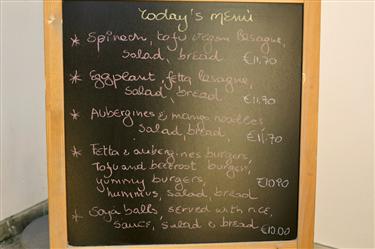 Today's Menu
* Spinach, tofu vegan lasagne,
salad, bread €11.70
* Eggplant, fetta lasagne,
salad, bread €11.70
* Aubergines & mango noodles
salad, bread, €11.70
* Fetta & aubergines burgers,
Tofu and beetroot burger,
yummy burgers, €10.90
hummus, salad, bread
* Soya balls, served with rice,
sauce, salad & bread €10.00